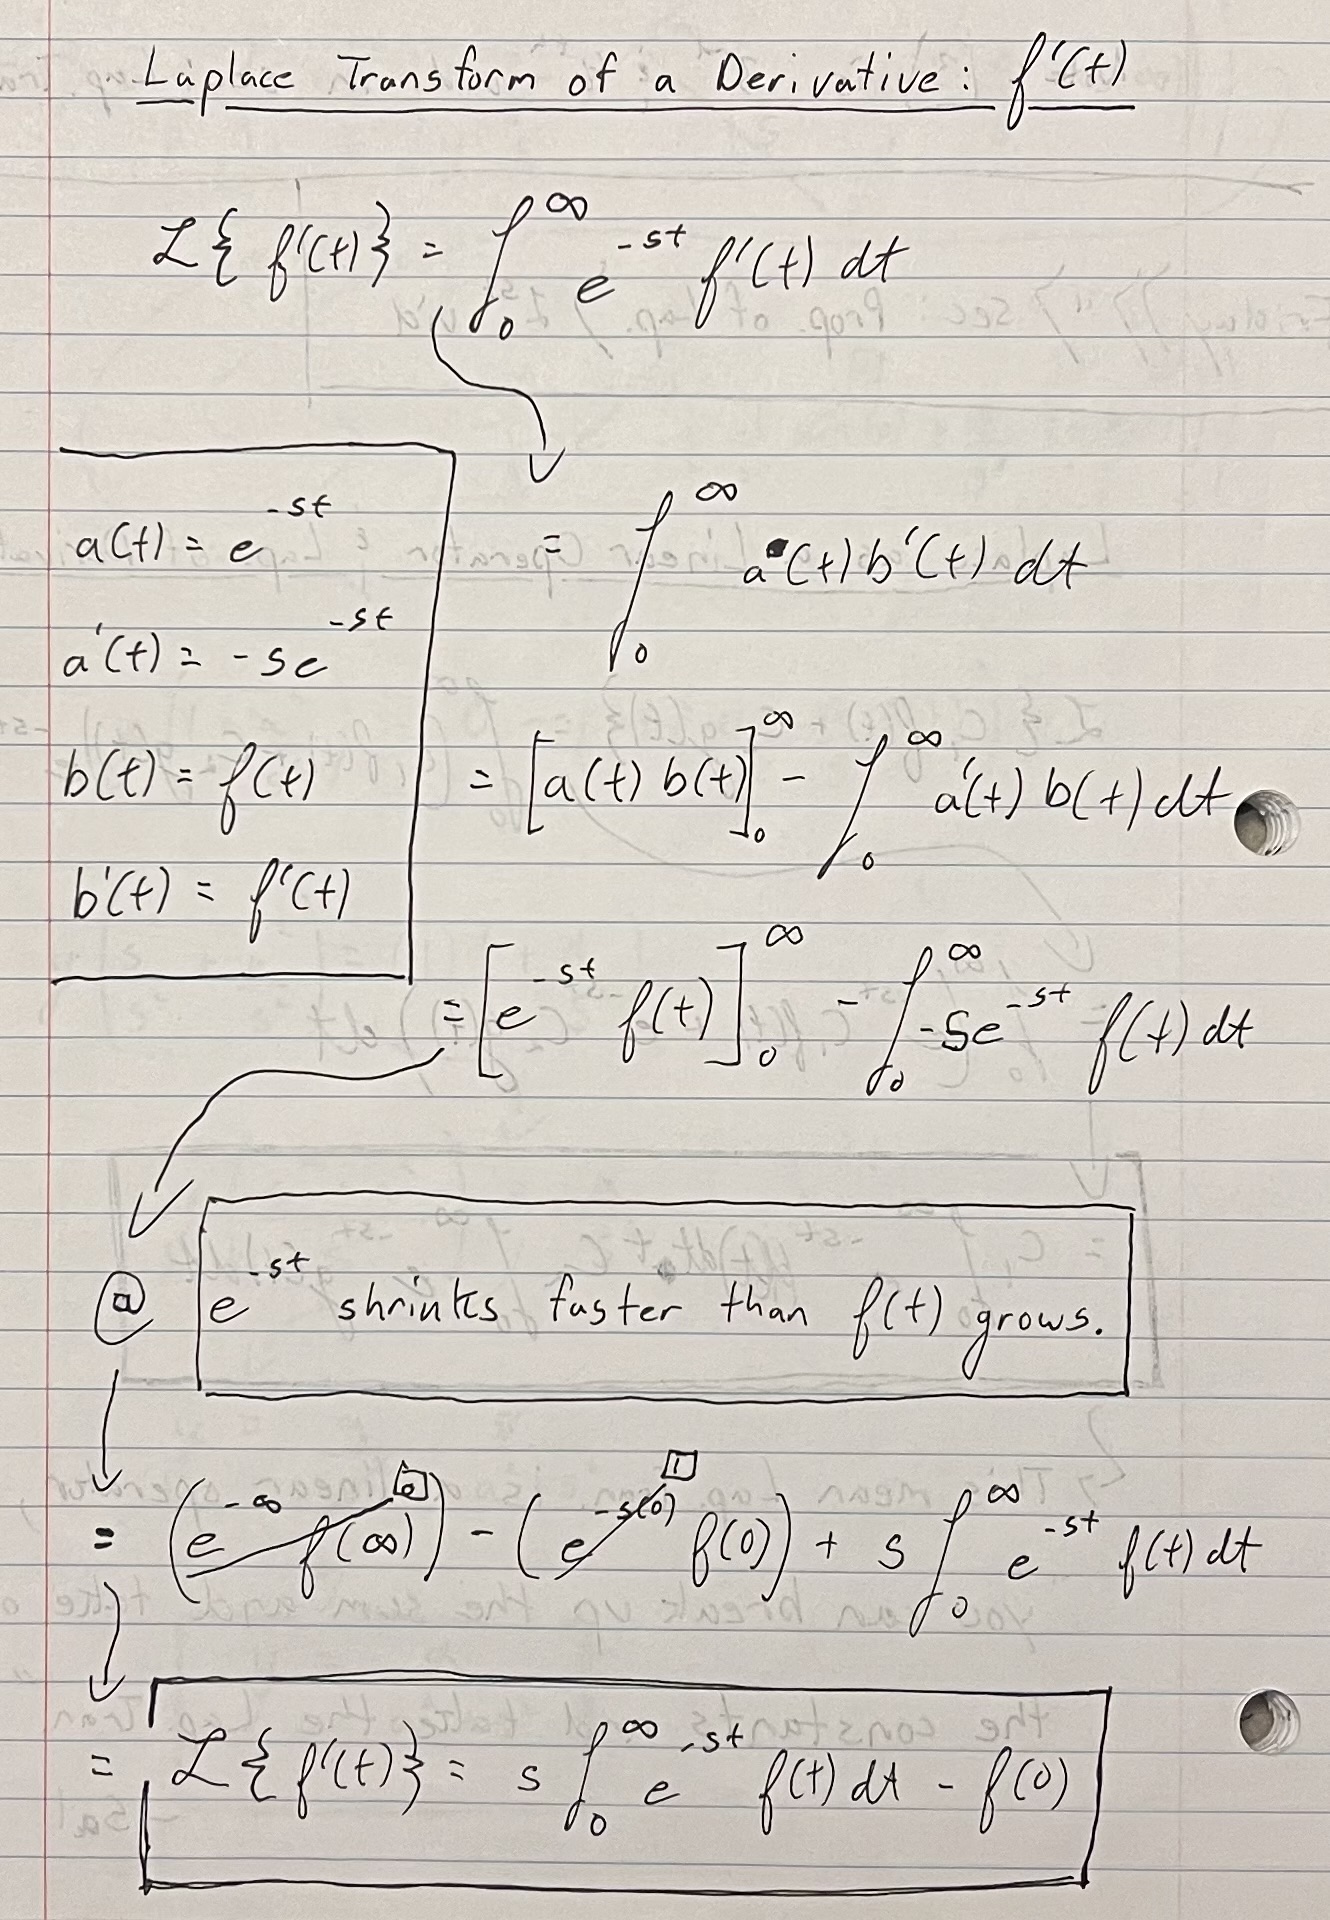 Laplace Transform of a Derivative: f'(t)
ℒ{f'(t)} = ∫₀^∞ e^{-st} f'(t) dt
a(t) = e^{-st}
a'(t) = -se^{-st}
b(t) = f(t)
b'(t) = f'(t)
= ∫₀^∞ a(t) b'(t) dt
= [a(t) b(t)]₀^∞ - ∫₀^∞ a'(t) b(t) dt
= [e^{-st} f(t)]₀^∞ - ∫₀^∞ -se^{-st} f(t) dt
@ e^{-st} shrinks faster than f(t) grows.
= (e^{-∞} f(∞)) 0 - (e^{-s(0)} 1 f(0)) + s ∫₀^∞ e^{-st} f(t) dt
= ℒ{f'(t)} = s ∫₀^∞ e^{-st} f(t) dt - f(0)